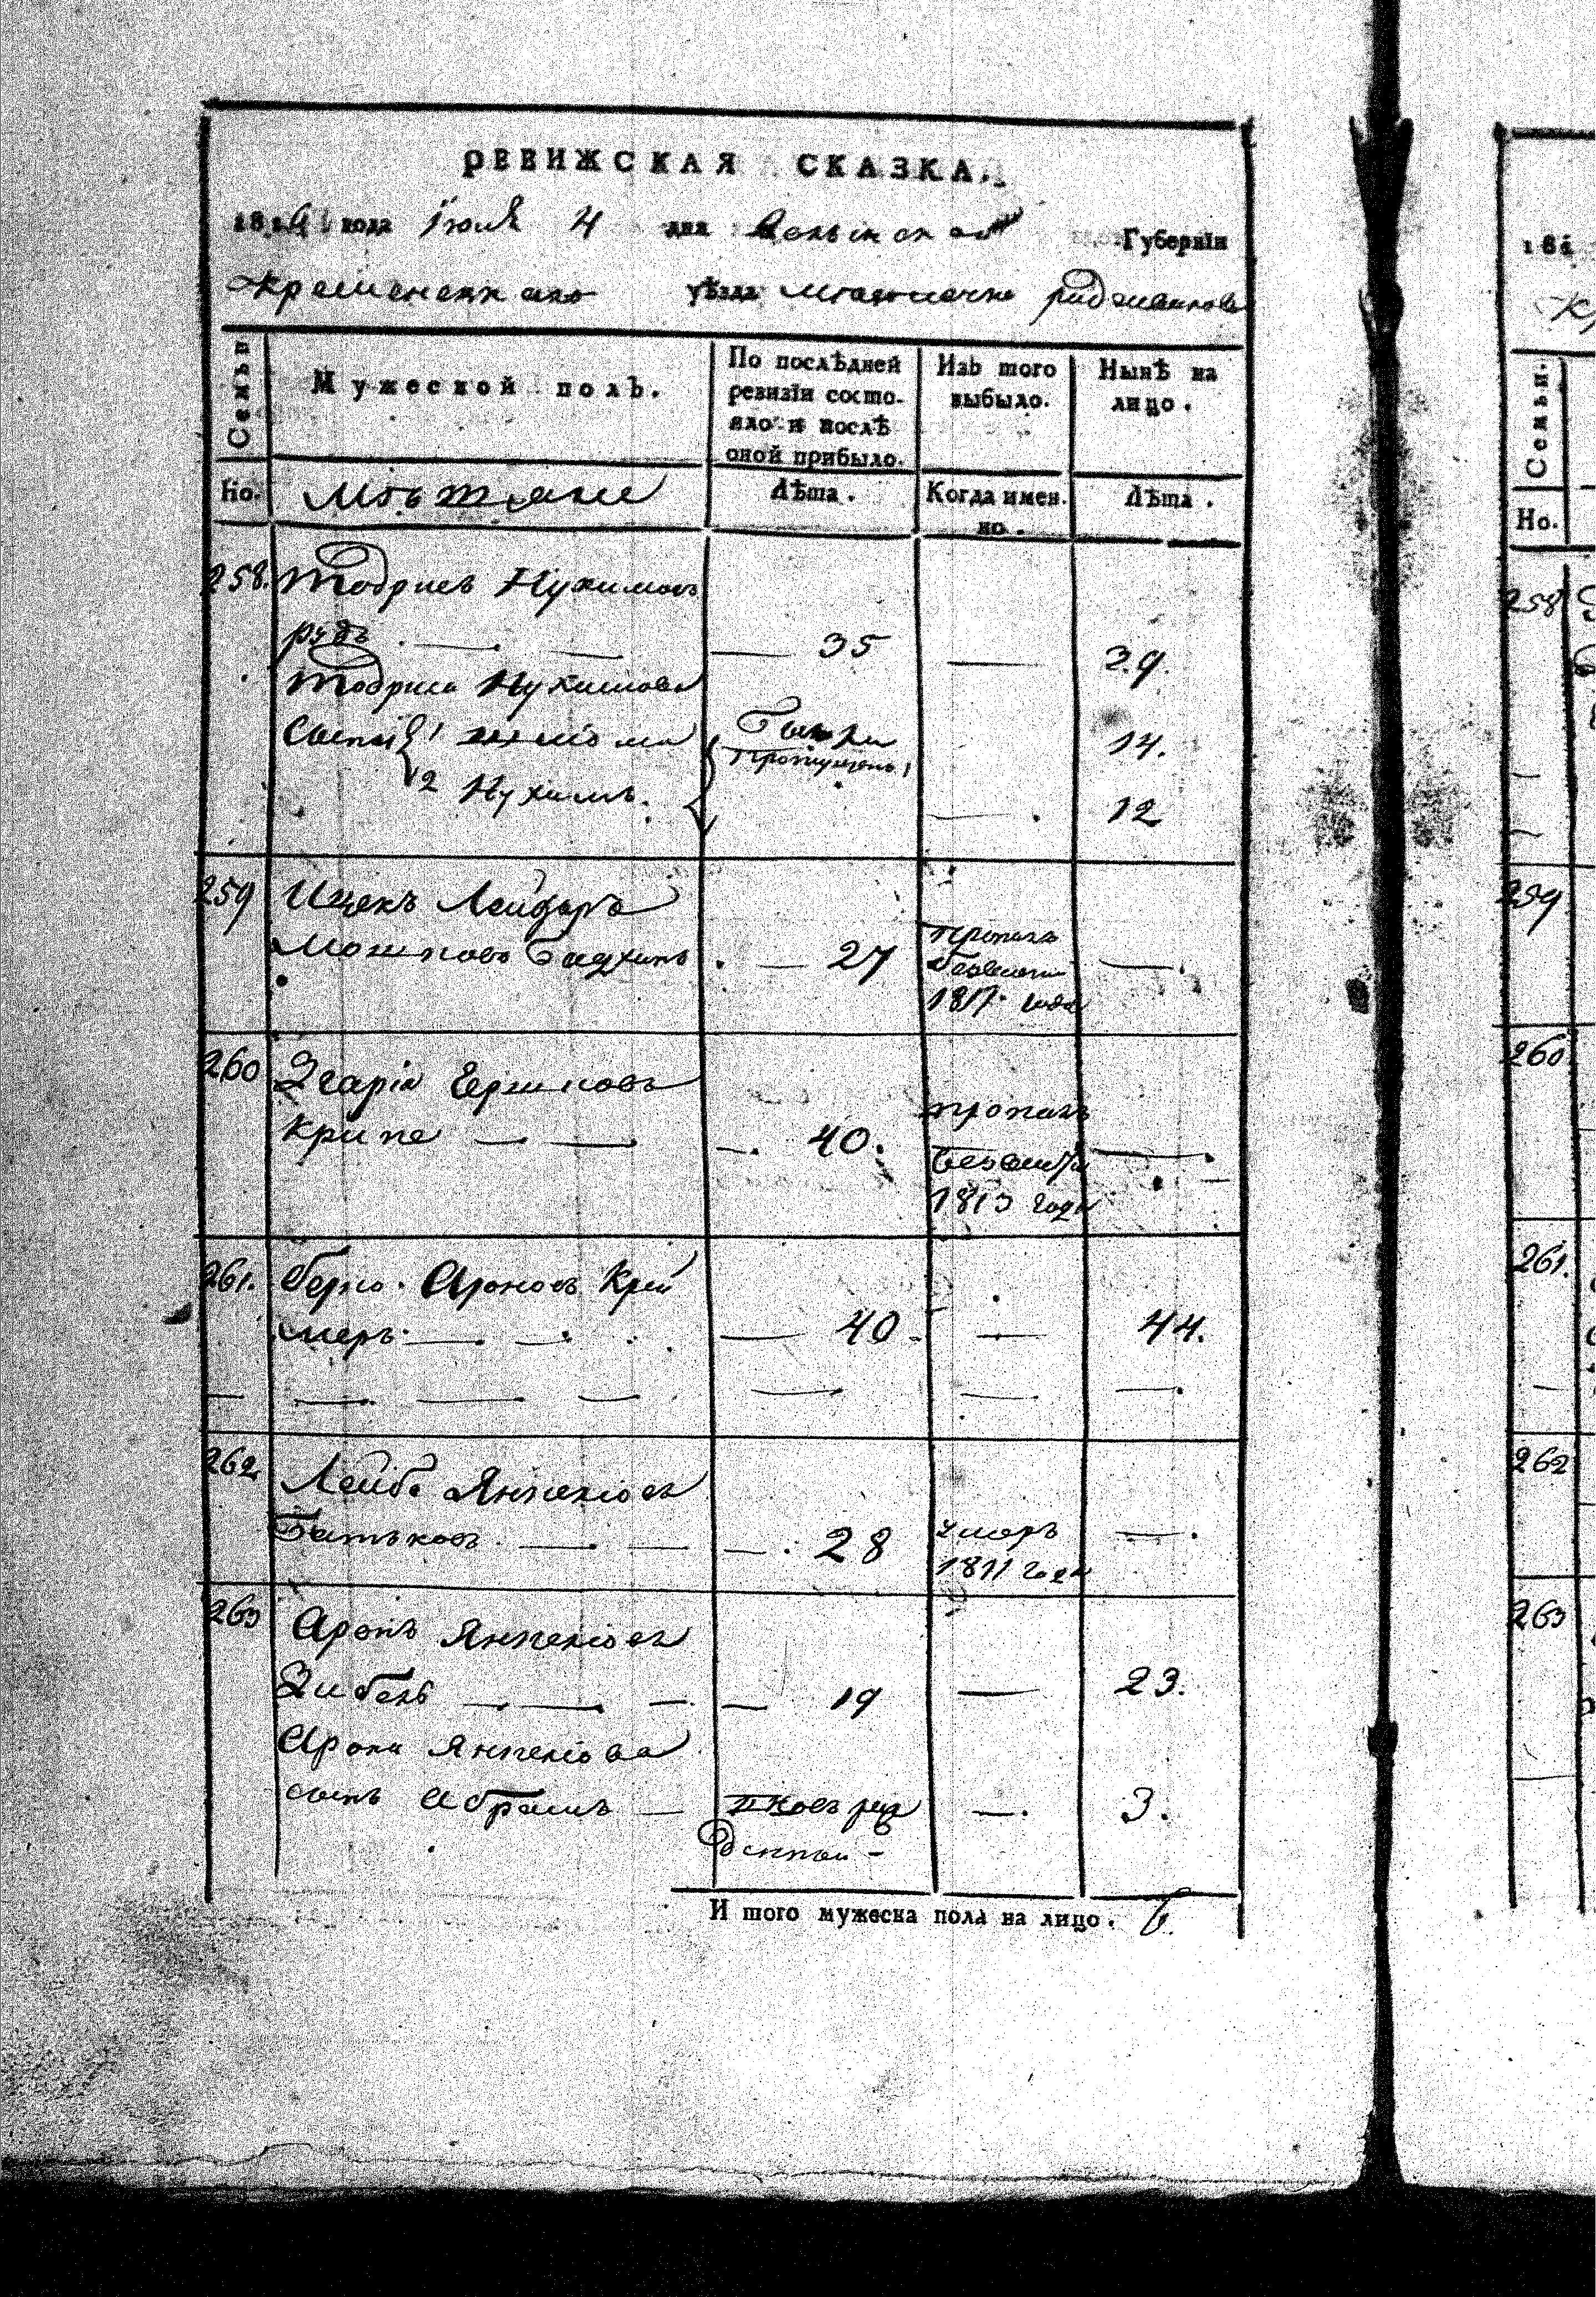 РЕВИЖСКАЯ СКАЗКА.
181 года Іюля 4 дня Волынской Губерніи
Кременецкаго уѣзда местечка радзивилова
Семьи
Мужеской полъ.
По послѣдней
ревизіи состо-
яло и послѣ
оной прибыло.
Изъ того
выбыло.
Нынѣ на
лицо.
Но.
Мѣщане
Лѣта.
Когда имен.
но.
Лѣта.
258. Тодрисъ Нухимовъ
рудъ 35 39.
Тодриса Нухимова
Сыны 1 14.
2 Нухимъ. 12
пропущены
259 Ицекъ Лейзоръ
Мошковъ 27
пропалъ
1817 года
260 Згарія Гершковъ
Крипе 40.
пропалъ
безвести
1813 года
261. берко Ароновъ Крей
меръ 40 44.
262 Лейба Янкеліовъ
Батьковъ 28
умеръ
1811 года
263 Аронъ Янкеліовъ
Зибель 19 23.
Арона Янкеліова
сынъ Абрамъ 3.
И того мужеска пола на лицо. 6.
181
Семьи.
Но.
258
259
260
261.
262
263